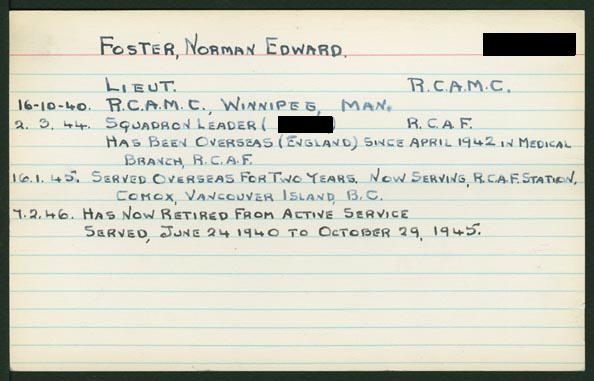 FOSTER, NORMAN EDWARD.
LIEUT. R.C.A.M.C.
16-10-40. R.C.A.M.C., WINNIPEG, MAN.
2. 3. 44. SQUADRON LEADER ( ) R.C.A.F.
HAS BEEN OVERSEAS (ENGLAND) SINCE APRIL 1942 IN MEDICAL
BRANCH, R.C.A.F.
16.1.45. SERVED OVERSEAS FOR TWO YEARS. NOW SERVING, R.C.A.F. STATION,
COMOX, VANCOUVER ISLAND, B.C.
7.2.46. HAS NOW RETIRED FROM ACTIVE SERVICE
SERVED, JUNE 24 1940 TO OCTOBER 29, 1945.